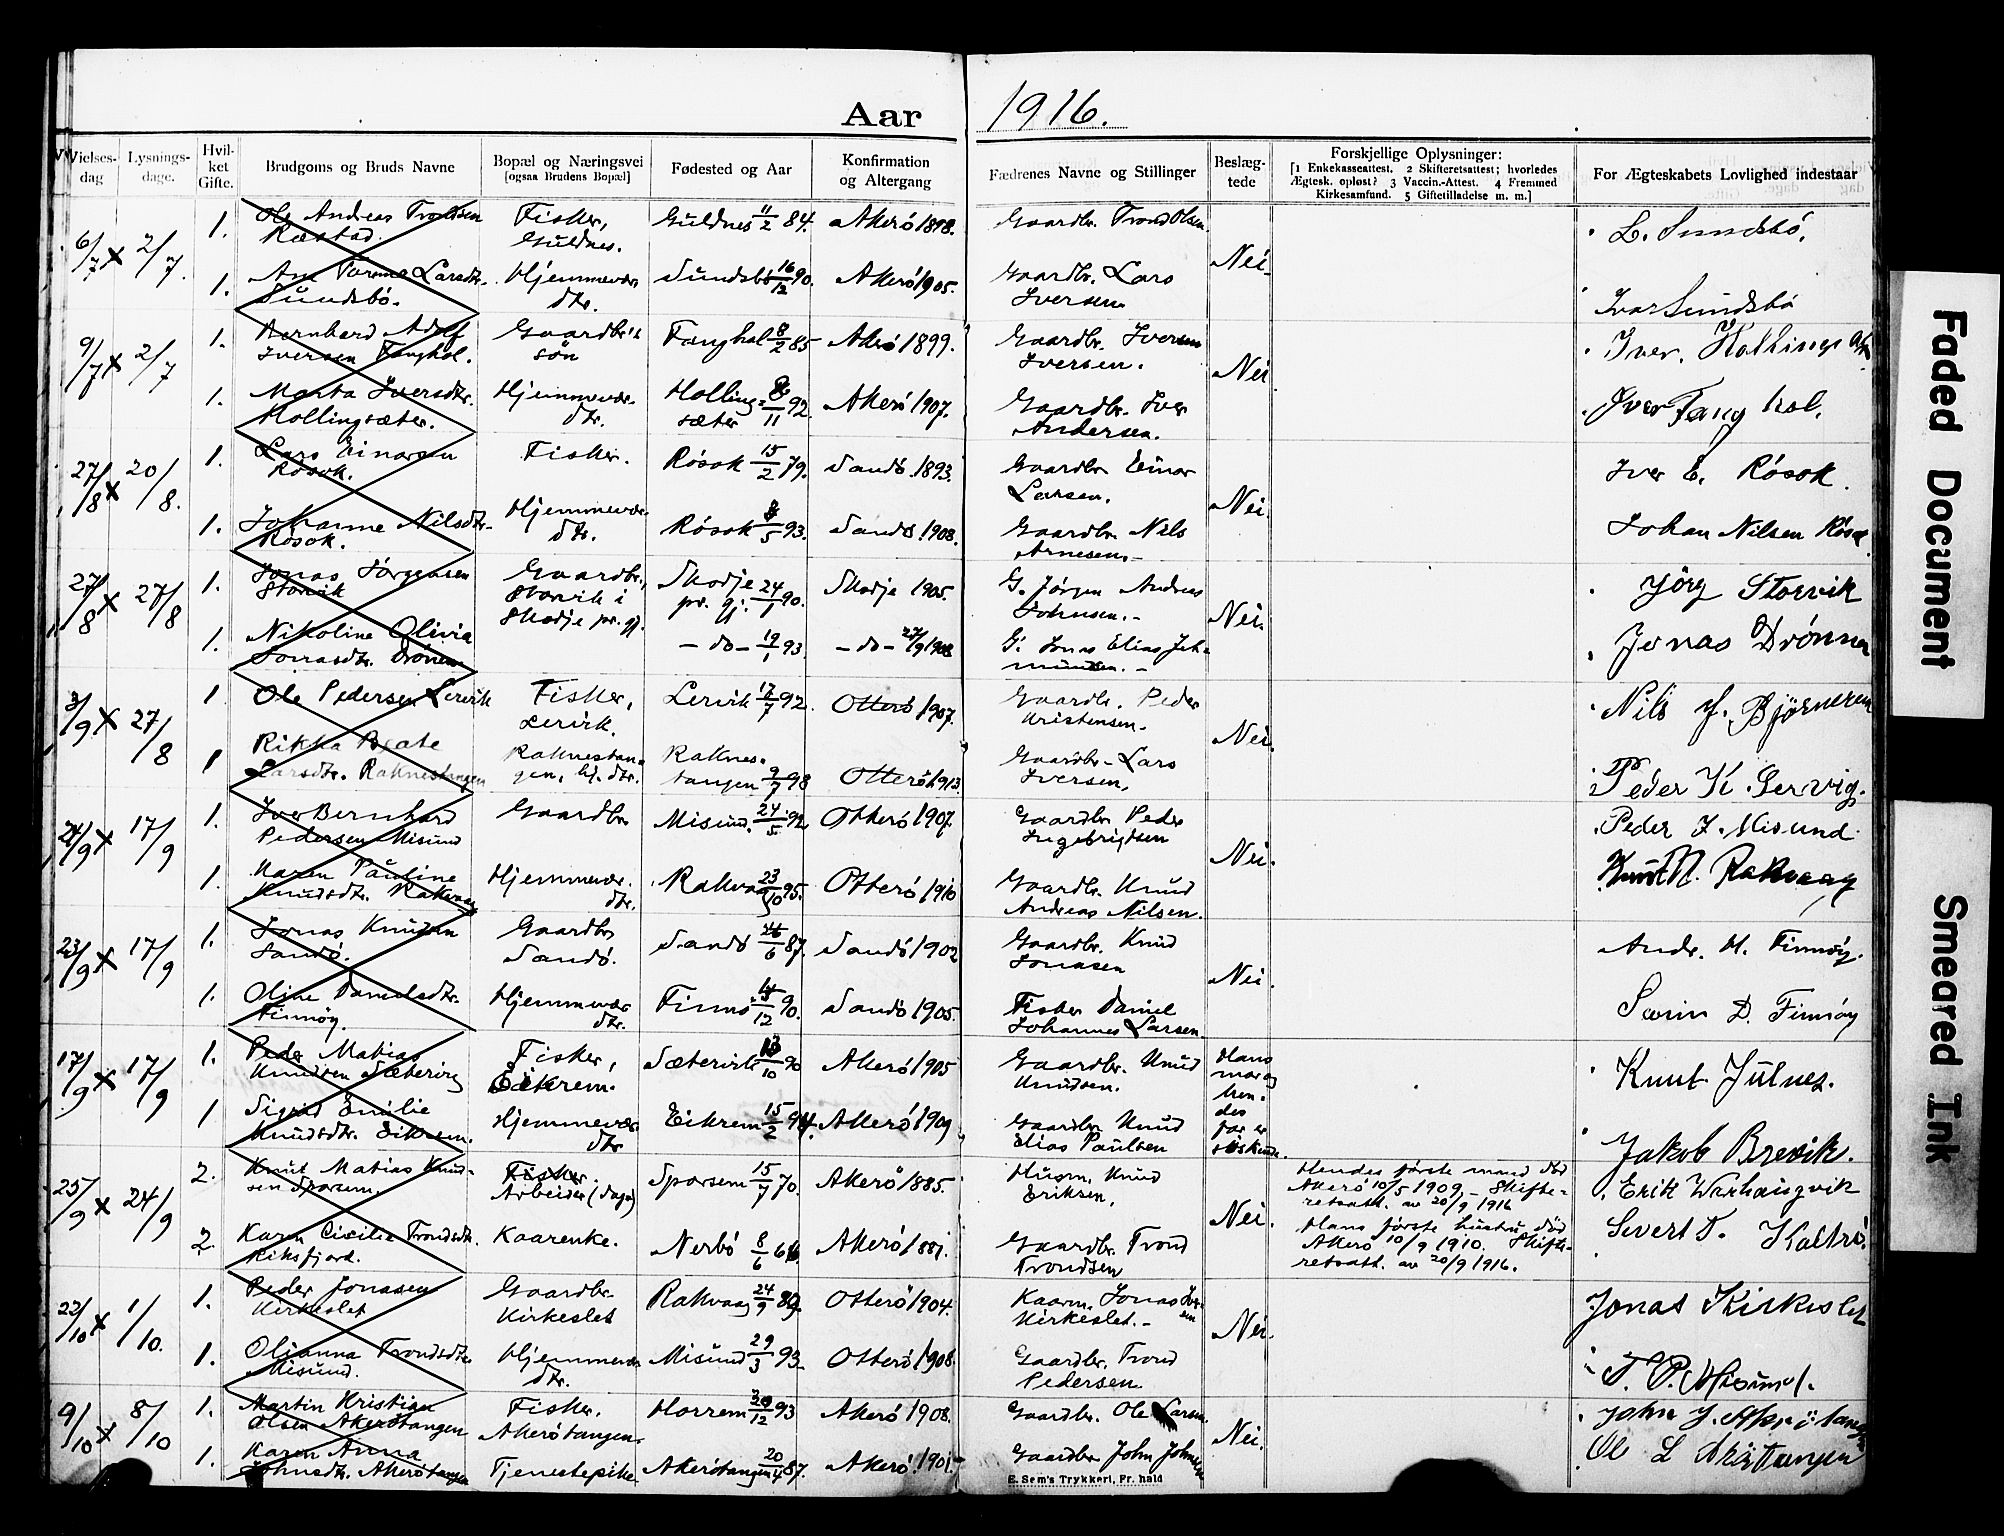 Aar 1916.
Vielses-dag
Lysnings-dage.
Hvil-ket Gifte.
Brudgoms og Bruds Navne
Bopæl og Næringsvei [ogsaa Brudens Bopæl]
Fødested og Aar
Konfirmation og Altergang
Fædrenes Navne og Stillinger
Beslæg-tede
Forskjellige Oplysninger:
[1 Enkekasseattest. 2 Skifteretsattest; hvorledes
Ægtesk. opløst? 3 Vaccin.-Attest. 4 Fremmed
Kirkesamfund. 5 Giftetilladelse m. m.]
For Ægteskabets Lovlighed indestaar
6/7 x 2/7. 1. Ole Andreas Trondsen Fisker, Guldnes 11/2 84. Akerö 1898. Gaardbr. Trond Olsen. Nei. L. Sundsbö.
Rästad. Guldnes.
1. Larsdtr. Hjemmevær. Sundsbö 16/12 90. Akerö 1905. Gaardbr. Lars Ivar Sundsbö
Sundsbö. dtr. Iversen
9/7 x 2/7 1. Bernhard Adolf Gaardbr's Tanghol 8/2 85 Akerö 1899. Gaardbr. Iversen Nei Iver.
Iversen Tanghol. sön Iversen.
1. Marta Iversdtr. Hjemmevær. Holling- 8/11 92 Akerö 1907. Gaardbr. Iver Iver Tanghol.
Hollingsæter. dtr. sæter Andersen.
27/8 x 20/8. 1. Lars Einarsen Fisker. Rösok 15/2 79. Sandö 1893. Gaardbr. Einar Nei. Iver E. Rösok.
Rösok. Larsen.
1. Johanne Nilsdtr. Hjemmevær. Rösok 8/5 93. Sandö 1908. Gaardbr. Nils Johan Nilsen Rösok
Rösok. dtr. Arnesen.
27/8 x 27/8 1. Jonas Jörgensen Gaardbr., Skodje Skodje 1905. G. Jörgen Andreas Nei. Jörg Storvik
Storvik Storvik i pr. gj. 24/1 90. Johnsen.
Skodje pr. gj.
1. Nikoline Olivia - do - 19/1 93. - do - 27/9 1908 G. Jonas Elias Jonas Drönnen
Jonasdtr. Drönen
3/9 x 27/8 1 Ole Pedersen Lervik Fisker, Lervik 17/7 92. Otterö 1907. Gaardbr. Peder Nei. Nils J. Björneren
Lervik. Kristensen.
1 Rikka Raknestan- Raknes- Otterö 1913. Gaardbr. Lars Peder K. Lervig.
Larsdtr. Raknestangen gen, hj. dtr. tangen 9/7 98 Iversen.
24/9 x 17/9 1. Iver Bernhard Gaardbr Misund. 24/5 92 Otterö 1907. Gaardbr Peder Nei. Peder J. Misund
Pedersen Misund Ingebrigtsen
1. Karen Pauline Hjemmevær. Rakvaag 23/10 95. Otterö 1910 Gaardbr. Knud Knut N. Rakvaag
Knudsdtr. Rakvaag dtr. Andreas Nilsen.
23/9 x 17/9 1. Jonas Knudsen Gaardbr Sandö 6 87. Sandö 1902 Gaardbr. Knud Nei. Andr. H. Finnöy.
Sandö. Sandö. Jonasen
1. Oline Danielsdtr. Hjemmevær Finnö 12 90. Sandö 1905. Fisker Daniel Sörin D. Finnöy
Finnöy. dtr. Johannes Larsen
17/9 x 17/9 1. Peder Matias Fisker, Sætervik 10 90 Akerö 1905 Gaardbr. Knud Hans mor og hen-des far er söskende. Knut Julnes.
Knudsen Sætervig Eikrem. Knudsen.
1 Sigrid Emilie Hjemmevær Eikrem 15/2 94. Akerö 1909 Gaardbr. Knud Jakob Brevik.
Knudsdtr. Eikrem. dtr Elias Paulsen
25/9 x 24/9 2. Knut Matias Knud- Fisker. Sporsem 15/7 70. Akerö 1885. Husm. Knud Nei. Hendes förste mand död Erik Varhaugvik
sen Sporsem. Arbeider (dags) Eriksen. Akerö 10/5 1909. - Skifte-
retsatt. av 20/9 1916
2 Karen Cicilie Trondsdtr. Kaarenke. Nerbö 8/6 64 Akerö 1881. Gaardbr. Trond Hans förste hustru död Severt T. Kaltrö.
Riksfjord. Trondsen Akerö 10/9 1910. Skifte-
retsatt. av 20/9 1916.
22/10 x 1/10. 1. Peder Jonasen Gaardbr. Rakvaag 24/9 89. Otterö 1904. Kaarm. Jonas Iver-sen Nei. Jonas Kirkeslet
Kirkeslet Kirkeslet Kirkeslet.
1. Olianna Trondsdtr. Hjemmevær Misund 29/3 93. Otterö 1908. Gaardbr. Trond T. P. Misund.
Misund. dtr. Pedersen.
9/10 x 8/10 1. Martin Kristian Fisker, Horrem 30/12 93 Akerö 1908. Gaardbr. Ole Larsen Nei. John J.
Olsen Akerötangen Akerötangen.
1. Karen Anna Tjenestepike Akerötangen 20/4 87. Akerö 1901. Gaardbr John Johnsen Ol L
Johnsdtr. Akerötangen
E. Sem's Trykkeri, Fr.hald
Faded Document
Smeared Ink